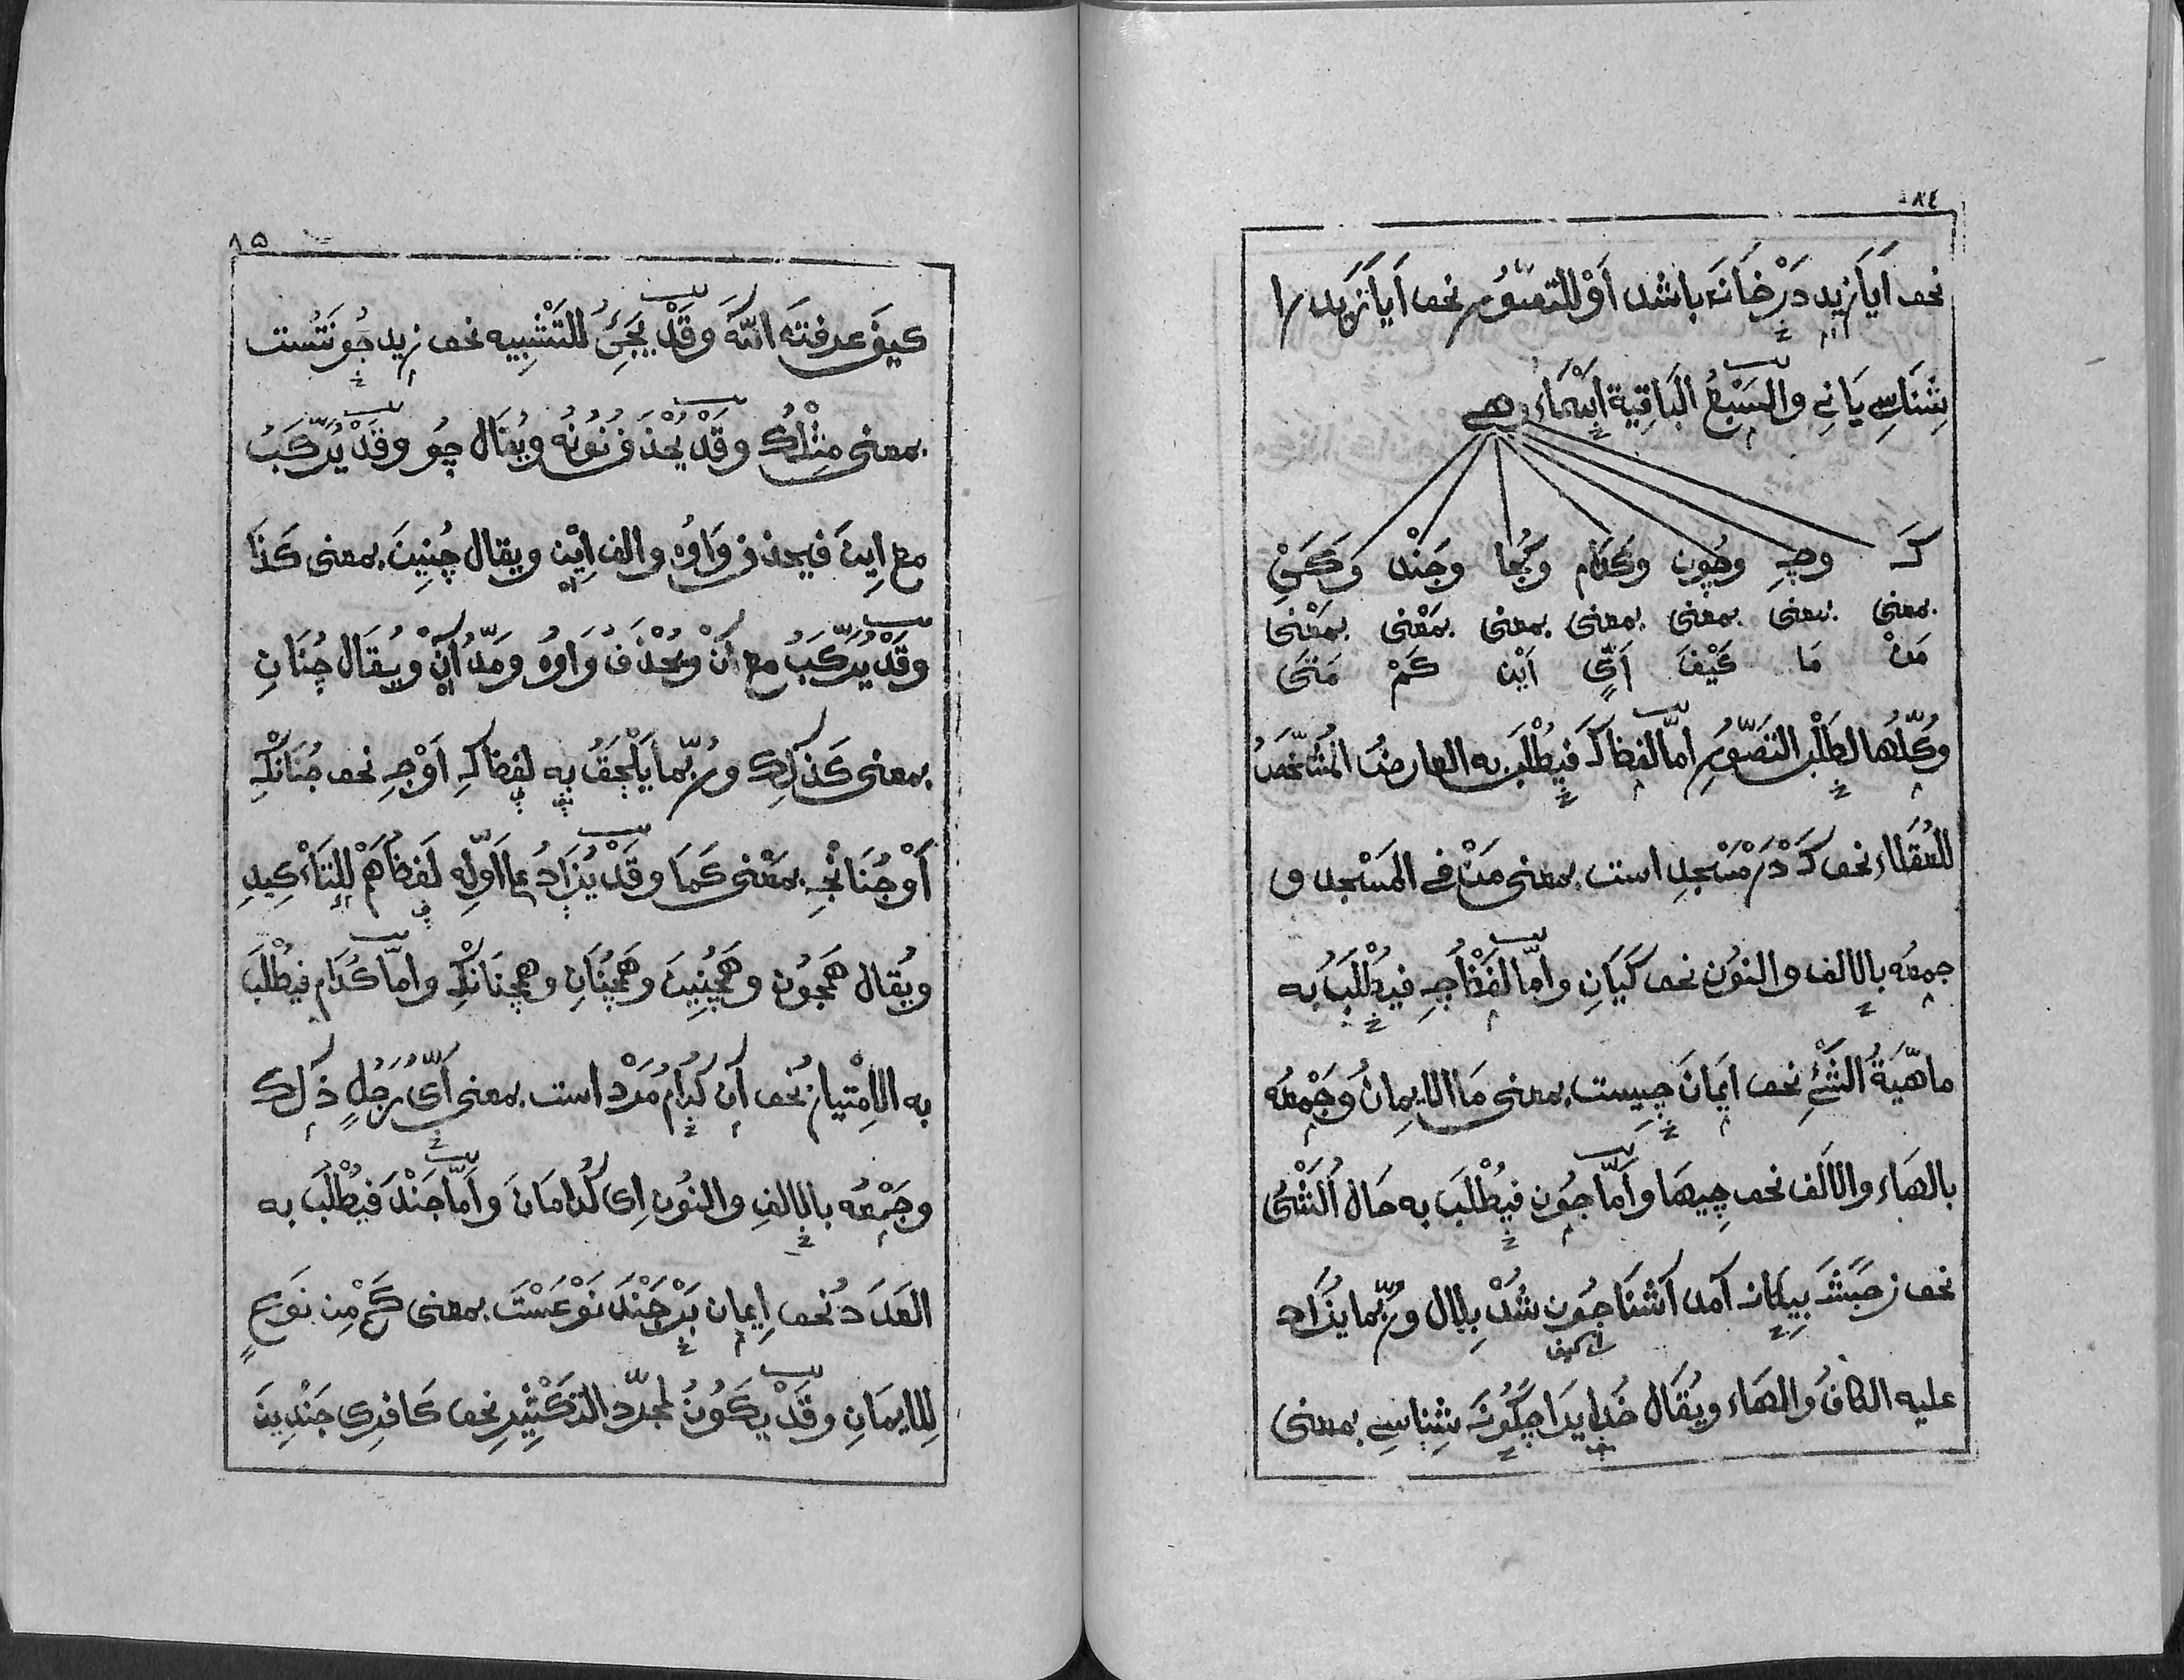 ٨٤
نحو آيَا زيد دَرْ خَانَه باشد أَوْ للتصوّر نحو آيَا زَيد را
شِنَاسِے يَانِے والسَبْعُ البَاقِية أَسْمَاء وهے
كَہ وچِہ وچُون وكُدَام وكُجا وچَنْد وَكَىْ
بمعنى بمعنى بمعنى بمعنى بمعنى بمَعْنى بمَعْنى
مَنْ مَا كَيْفَ اَىّ اَيْن كَمْ مَتَى
وَكُلُّهَا لطَلْب التصَوُّرِ امّا لفظ كہ فيُطْلَب به العارضُ المُشَخّصُ
للعُقَلاء نحو كہ دَرْ مَسْجدِ است بمعنى مَنْ فے المَسْجد و
جمعُه بالالف والنوُن نحو كَيَانِ وامّا لَفْظُ چِہ فيُطْلَبُ به
ماهّيَةُ الشَّئِ نحو ايمَانَ چِيست بمعنى مَا الايمانُ وَجَمْعُه
بالهَاء والالَف نحو چِيهَا وَأَمّا چُون فيُطْلَب به حَال الشَّىْ
نحو ز حَبَشَہ بيِگانہ آمد آشنَا چُون شُدْ بِلال ورُبّما يزَاد
اى كيف
عليه الكافُ والهَاء ويُقَال خُدايرَا چِگُونَہ شِنَاسِے بمعنى
٨٥
كيفَ عرفتَه الله وَقَدْ يَجِئُ للتَّشْبِيه نحو زيد چُونتُست
بمعنى مِثْلُك وقَدْ يُحْذَف نُونُه ويُقَال چُو وقَدْ يُرَكَّبُ
مع اِين فيحذف وَاوُه والف اِيْن ويقال چُنِينَ بمعنى كَذَا
وقَدْ يُرَكَّبُ مع آنْ وَيُحْذَفُ وَاوُهُ ومَدُّ آنْ ويُقَال چُنَانِ
بمعنى كَذلِك ورُبّما يَلْحَقُ بِه لفظ كہِ اَوْ چِہ نحو چُنَانْكہِ
أَوْ چُنَانْچِہ بمَعْنى كَمَا وقَدْ يُزَادُ على اَوّلِه لَفظُ هَمْ لِلتَأكِيدِ
ويُقال هَمچُون وهَمچُنِينَ وهَمچُنَانِ وهمچنَانْكِہ وامّا كُدَام فيُطْلَبَ
به الاِمْتياز نُحو آن كُدَام مَرْد است بمعنى اَىُّ رَجُلٍ ذلِك
وجَمْعُه بالالفِ والنُون اى كُدَامَانَ وَاَمّا چَنْدَ فيُطْلَبُ به
العَدَدُ نحو اِيمان بَرْ چَنْدَ نَوْعَسْتَ بمعنى كَمْ مِن نَوعٍ
لِلايمَانِ وقَدْ يكَوُنُ لمجرّد التكْثِيرِ نحو كَافرِى چَنْدِينَ